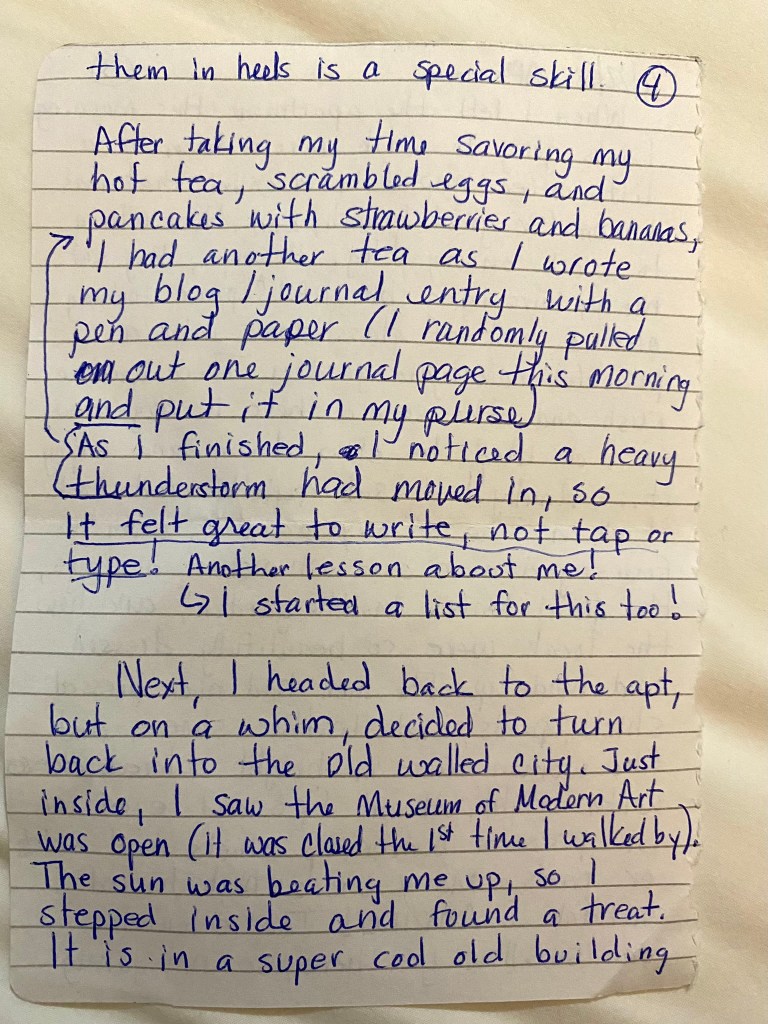 them in heels is a special skill. 4
After taking my time savoring my
hot tea, scrambled eggs, and
pancakes with strawberries and bananas,
I had another tea as I wrote
my blog / journal entry with a
pen and paper (I randomly pulled
out one journal page this morning
and put it in my purse)
As I finished, I noticed a heavy
thunderstorm had moved in, so
It felt great to write, not tap or
type! Another lesson about me!
↳ I started a list for this too!
Next, I headed back to the apt,
but on a whim, decided to turn
back into the old walled city. Just
inside, I saw the Museum of Modern Art
was open (it was closed the 1st time I walked by).
The sun was beating me up, so I
stepped inside and found a treat.
It is in a super cool old building